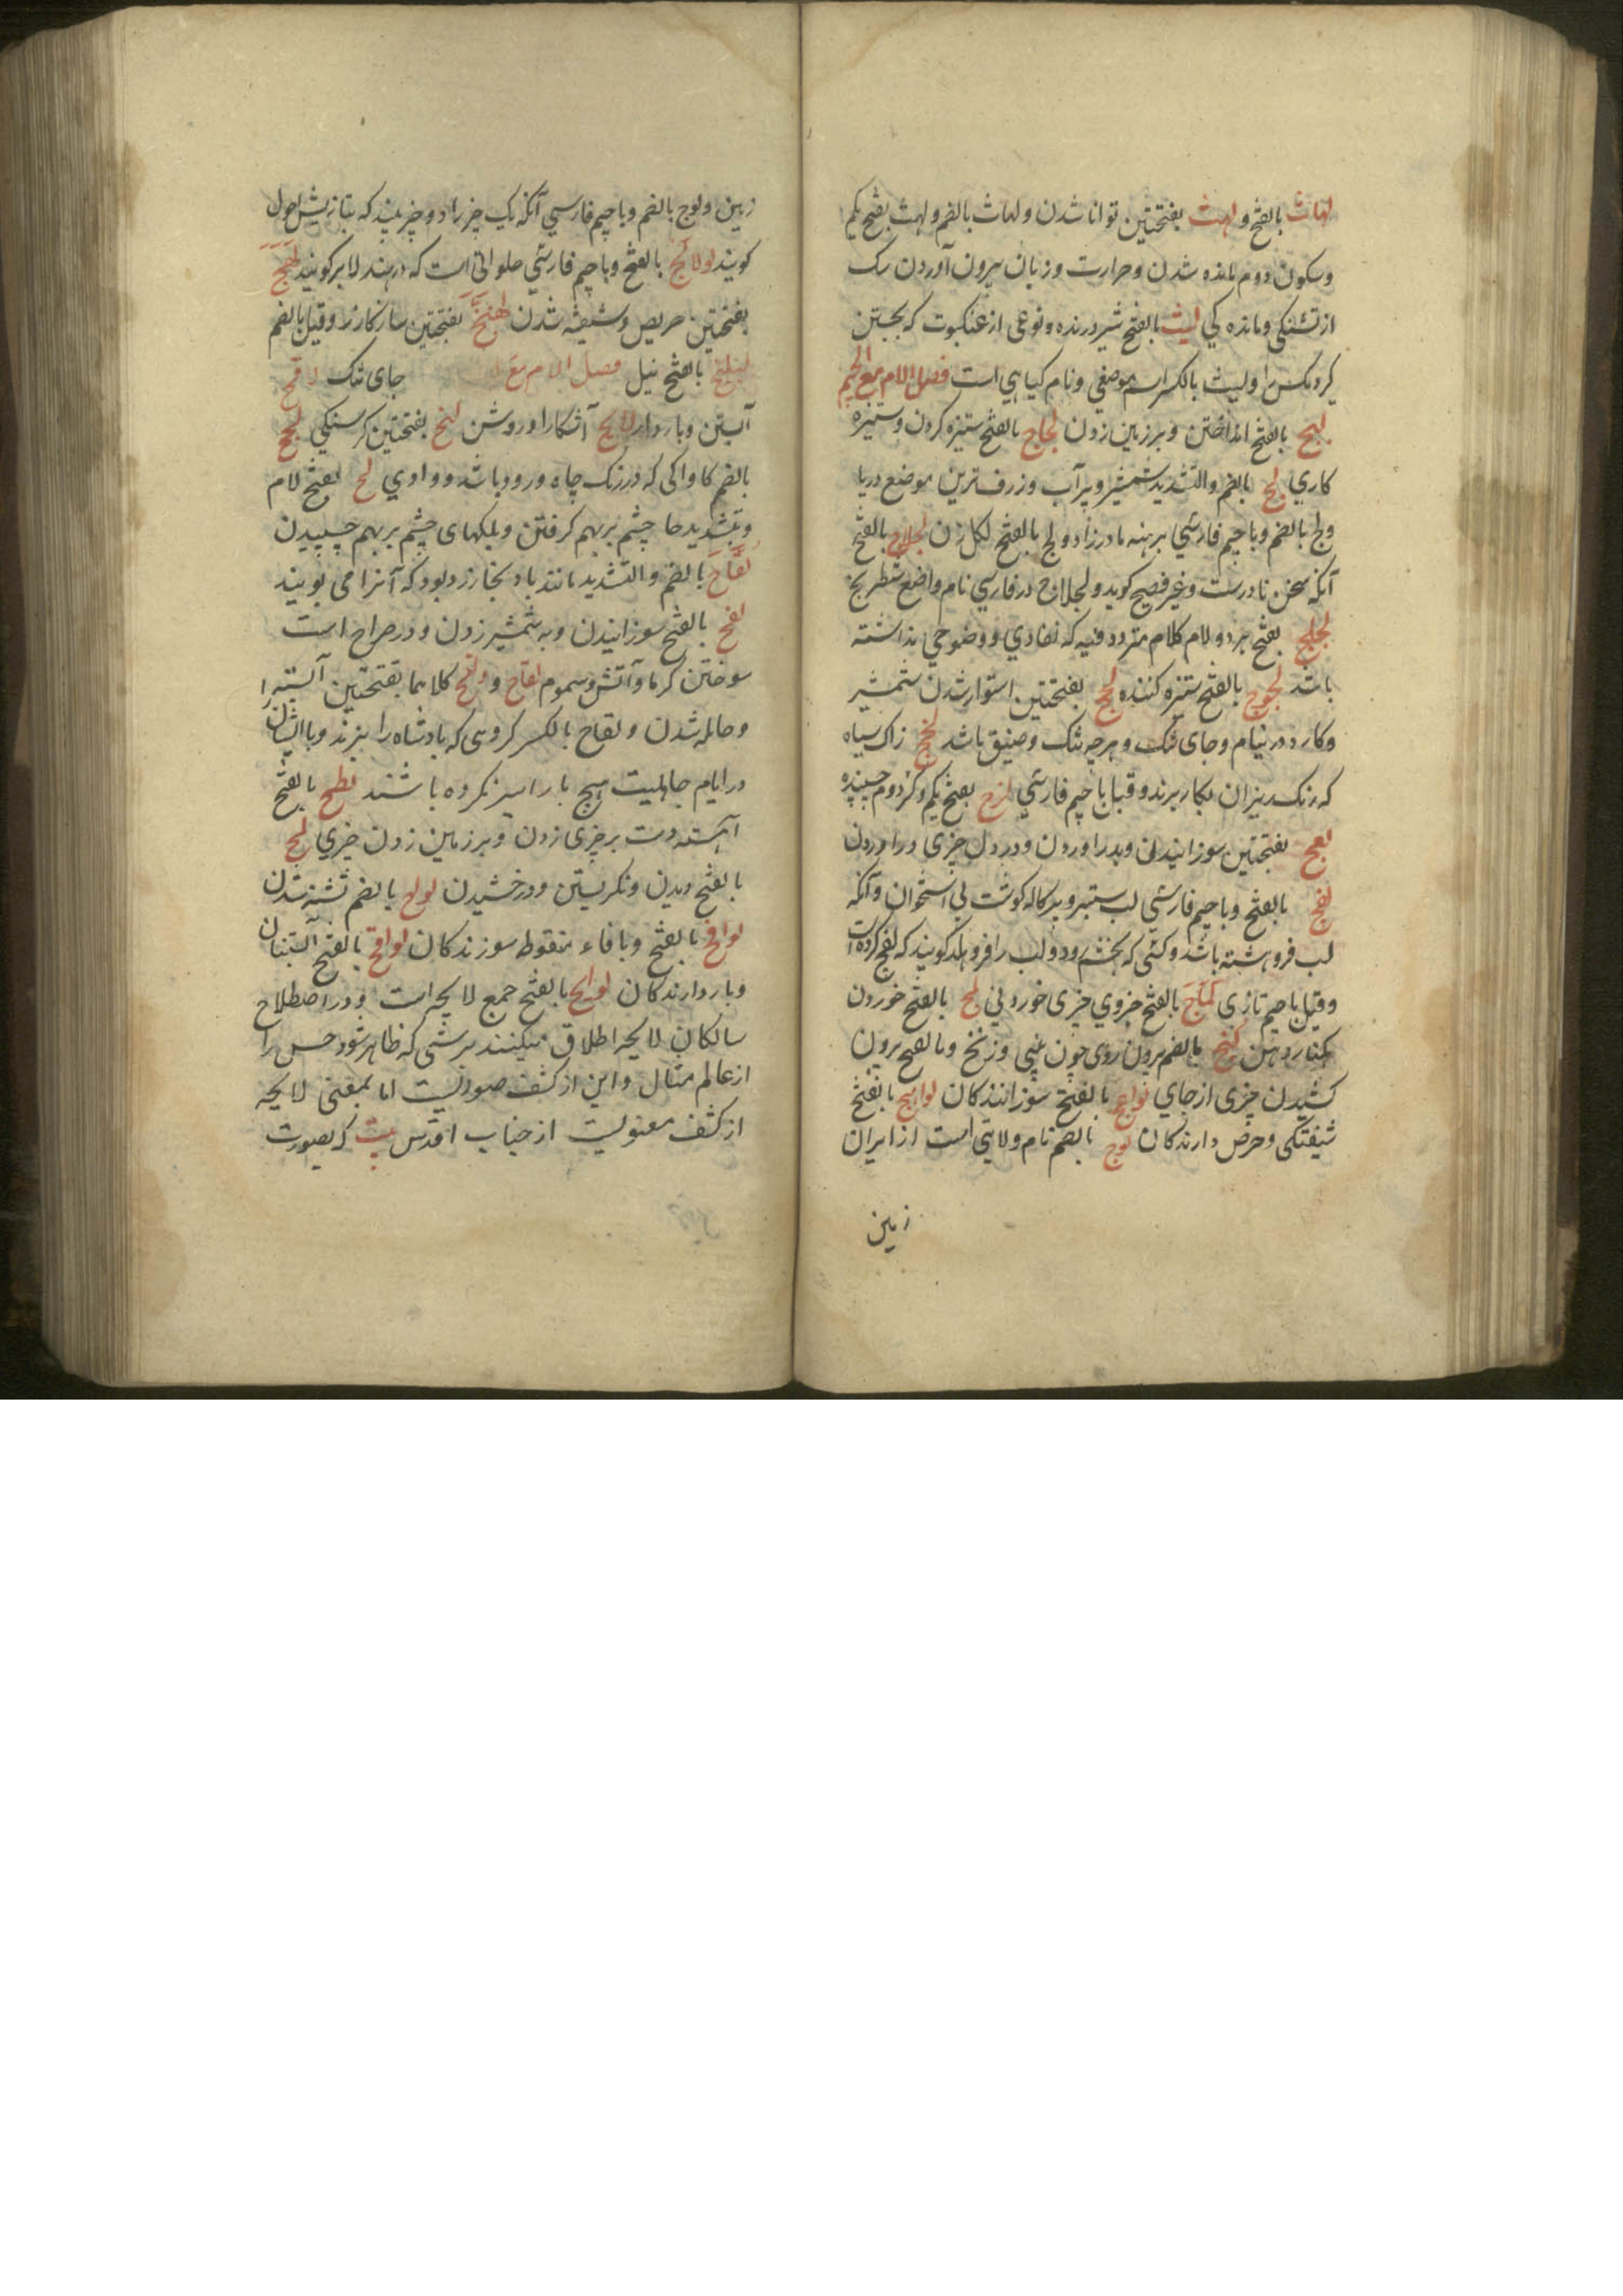 لهاث بالفتح و لهث بفتحتین توانا شدن ولهاث بالضم و لهث بفتح یکم
وسکون دوم مانده شدن وحرارت وزبان بیرون آوردن سک
از تشنکی وماندگی لیث بالفتح شیر درنده ونوعی از عنکبوت که بجستن
کیرد مکس را ولیث بالکسر اسم موضعی ونام کیاهی است فصل اللام مع الجیم
لبج بالفتح انداختن وبر زمین زدن لجاج بالفتح ستیزه کردن وستیزه
کاری لج بالضم والتشدید شمشیر وپر آب وژرف ترین موضع دریا
ولج بالضم وباجیم فارسی برهنه مادرزاد ولج بالفتح لکد زدن لجلاج بالفتح
آنکه سخن نادرست وغیر فصیح کوید ولجلاج در فارسی نام واضع شطرنج
لجلج بفتح هر دو لام کلام متردد فیه که نفادی ووضوحی نداشته
باشد لجوج بالفتح ستیزه کننده لحج بفتحتین استوار شدن شمشیر
وکارد در نیام وجای تنک وهرچه تنک وضیق باشد لخج زاک سیاه
که رنک ریزان بکار برند وقیل باجیم فارسی لزج بفتح یکم وکسر دوم چسپنده
لعج بفتحتین سوزانیدن وبدرد آوردن ودرد دل چیزی و را
لفج بالفتح وباجیم فارسی لب ستبر وپرکاله کوشت بی استخوان وآنکه
لب فروهشته باشد وکسی که بخشم رود ولب را فروهلد کویند که لفج کرده است
وقیل باجیم تازی لماج بالفتح جزوی چیزی خوردنی لمج بالفتح خوردن
بکنار دهن لنج بالضم بیرون روی چون بینی وزنخ وبالفتح بیرون
کشیدن چیزی از جای لواعج بالفتح سوزانندکان لواهج بالفتح
شیفتکی وحرص دارندکان لوج بالضم نام ولایتی است از ایران
زمین
زمین ولوج بالضم وباجیم فارسی آنکه یک چیز را دو چیز بیند که بتازیش احول
کویند لولانج بالفتح وباجیم فارسی حلوائی است که در هند لابر کویند لهج
بفتحتین حریص وشیفته شدن لهنج بفتحتین ساز کازر وقیل بالضم
لیلنج بالفتح نیل فصل اللام مع جای تنک لاقح
آبستن وباردار لایح آشکارا وروشن لتح بفتحتین کرسنکی لجح
بالضم کاواکی که در تک چاه ورود باشد ووادی لح بفتح لام
وتشدید حا چشم برهم کرفتن وپلکهای چشم برهم چسپیدن
لفاح بالضم والتشدید مانند بادنجان زرد بود که آنرا می بویند
لفح بالفتح سوزانیدن وبه شمشیر زدن ودر صراح است
سوختن کرما وآتش وسموم لقاح و لقح کلاهما بفتحتین آبستن
وحامله شدن ولقاح بالکسر کروهی که پادشاه را نبرند وبا ایشان
در ایام جاهلیت هیچ بار اسیر نکرده باشند لطح بالفتح
آهسته دست بر چیزی زدن وبر زمین زدن چیزی لمح
بالفتح دیدن ونکریستن ودرخشیدن لوح بالضم تشنه شدن
لوافح بالفتح وبا فاء منقوط سوزندکان لواقح بالفتح آبستنان
وباردارندکان لوایح بالفتح جمع لایحه است ودر اصطلاح
سالکان لایحه اطلاق میکنند بر شی که ظاهر شود حس را
از عالم مثال واین از کشف صوریست اما بمعنی لایحه
از کشف معنویست از جناب اقدس بیت که بصورت